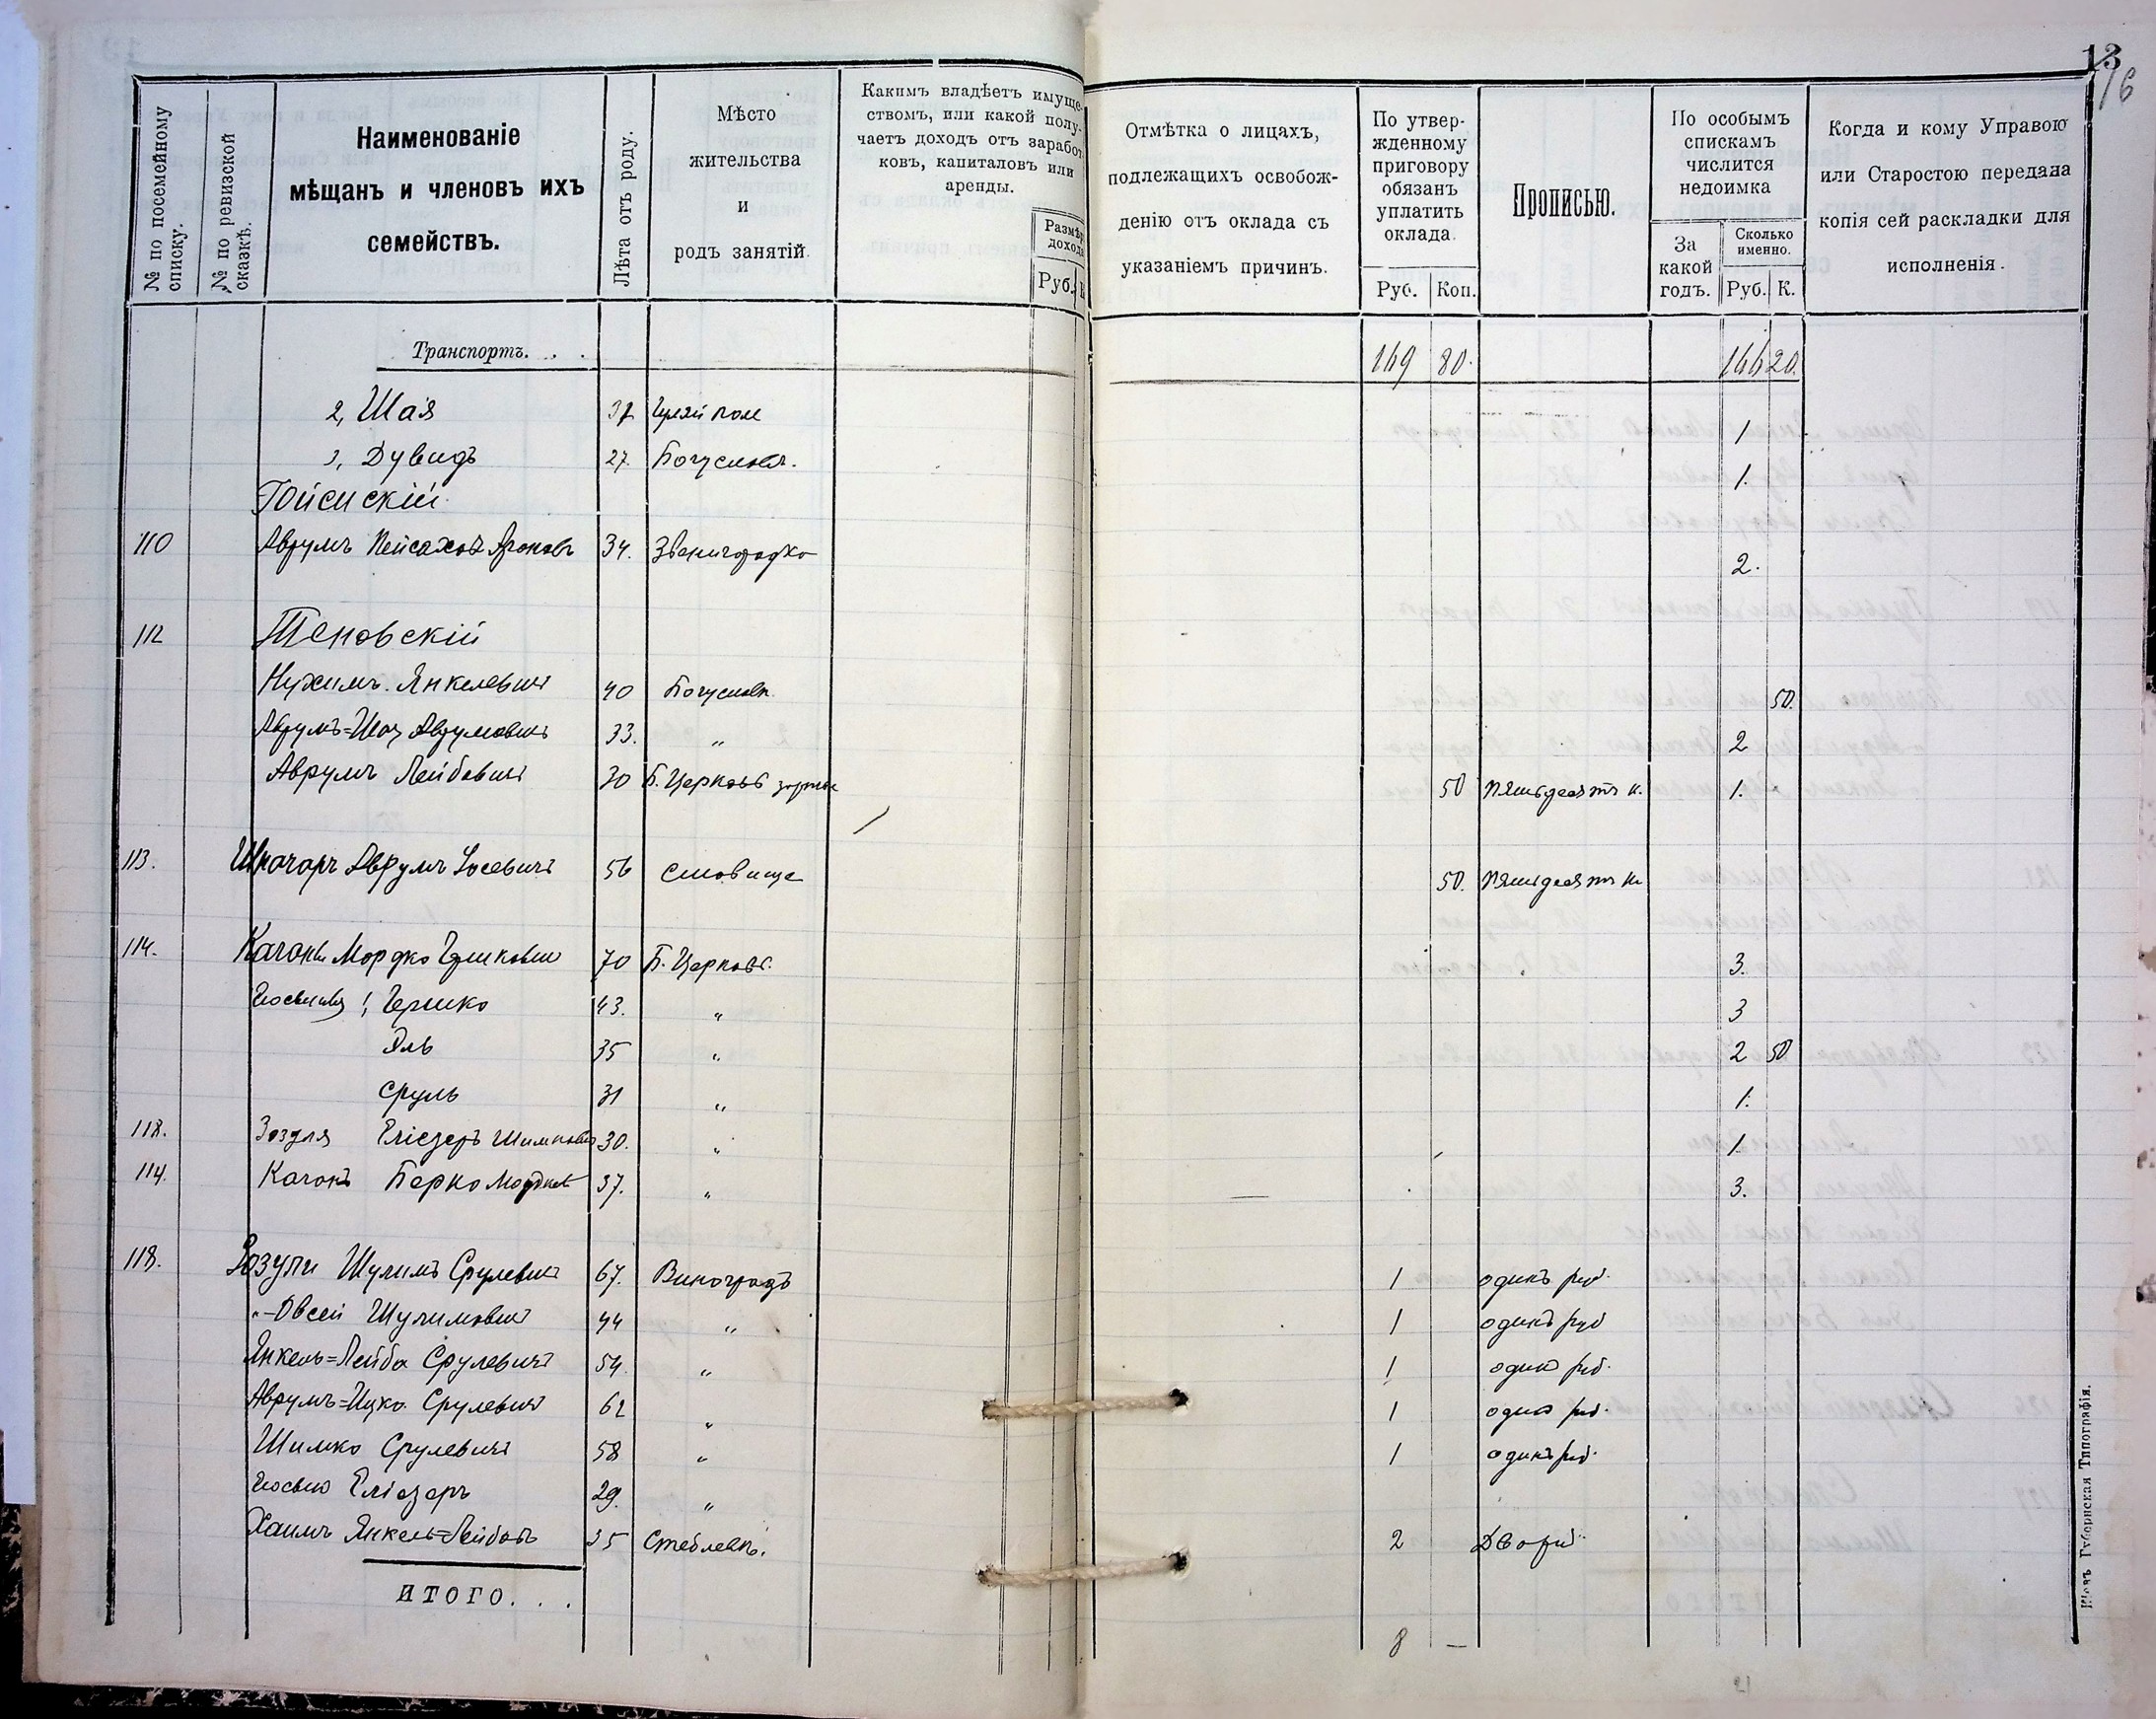 13
16
№ по посемейному списку.
№ по ревизской сказкѣ.
Наименованіе мѣщанъ и членовъ ихъ семействъ.
Лѣта отъ роду.
Мѣсто жительства и родъ занятій.
Какимъ владѣетъ имуще-
ствомъ, или какой полу-
чаетъ доходъ отъ заработ-
ковъ, капиталовъ или
аренды.
Размѣр
дохода
Руб. К
Отмѣтка о лицахъ,
подлежащихъ освобож-
денію отъ оклада съ
указаніемъ причинъ.
По утвер-
жденному
приговору
обязанъ
уплатить
оклада.
Руб. Коп.
Прописью.
По особымъ
спискамъ
числится
недоимка
За какой годъ.
Сколько именно.
Руб. К.
Когда и кому Управою
или Старостою передана
копія сей раскладки для
исполненія.
Транспортъ. . . 149 80. 144 20.
2, Шая 37 1
3, Дувидъ 27. Богуслав. 1.
110 Аврумъ Пейсахов 34. Звенигородка 2.
112 Теновскій
Нухимъ Янкелевичъ 40 Богуслав. 50.
Аврумъ= Аврумовичъ 33. „ 2
Аврумъ Лейбовичъ 30 Б. Церковь 50 пятьдесятъ к. 1.
113. Аврумъ Іосевичъ 56 Ставище 50. пятьдесятъ к.
114. Мордко 70 Б. Церковь. 3.
1, Гершко 43. „ 3
Эль 35 „ 2 50
Сруль 31 „ 1.
118. Зозуля Еліезеръ 30. „ 1.
114. Каганъ Берко Мордков 37. „ 3.
118. Зозули Шулимъ Срулевичъ 67. Виноградъ 1 одинъ руб.
„-Овсей Шулимовичъ 44 „ 1 одинъ руб
Янкель=Лейба Срулевичъ 54. „ 1 одинъ руб.
Аврумъ=Ицко Срулевичъ 62 „ 1 одинъ руб.
Шимко Срулевичъ 58 „ 1 одинъ руб.
Еліезеръ 29. „
Хаимъ Янкель=Лейбовъ 35 Стеблевъ. 2 Два руб.
ИТОГО. . .
8 —
Кіевъ Губернская Типографія.